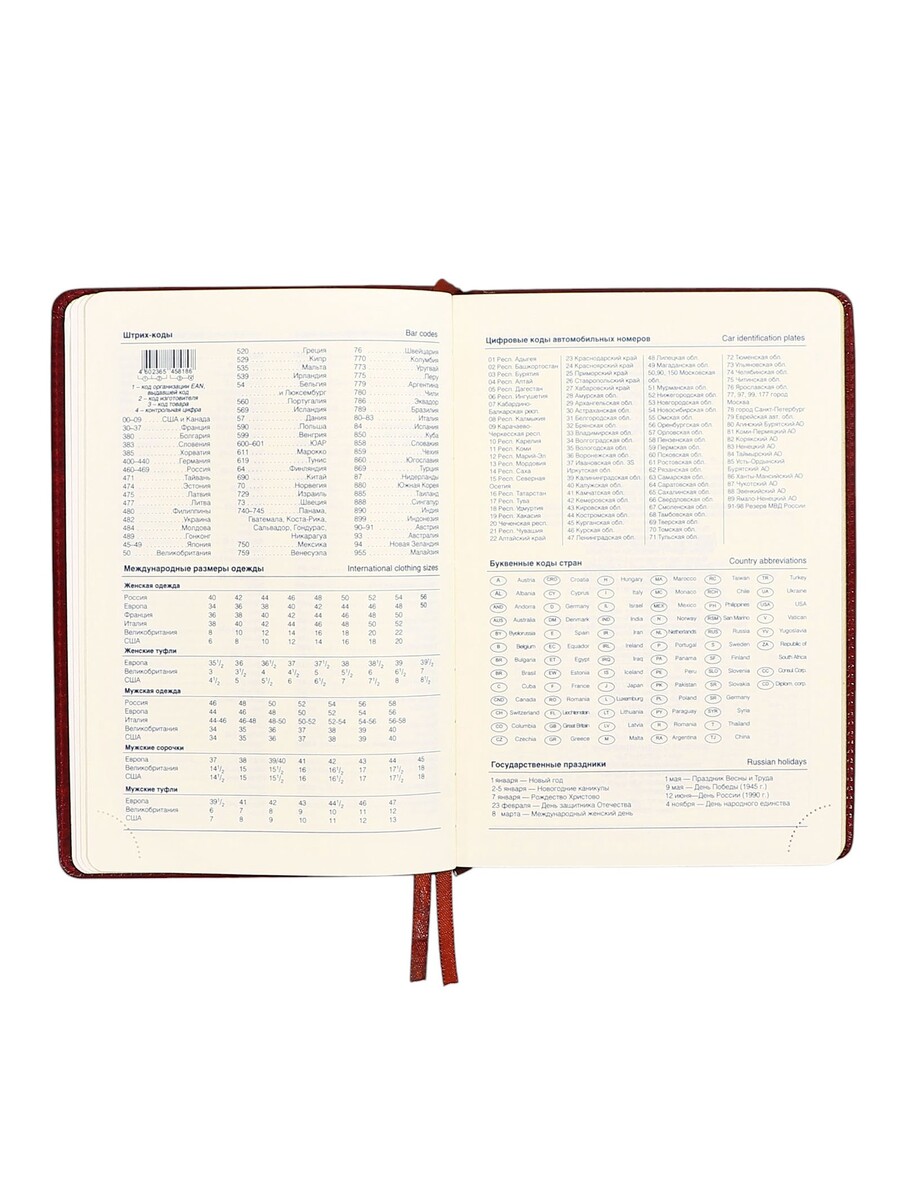 Штрих-коды Bar codes
4 602365 458186
1 – код организации EAN,
выдавшей код
2 – код изготовителя
3 – код товара
4 – контрольная цифра
00–09 США и Канада
30–37 Франция
380 Болгария
383 Словения
385 Хорватия
400–440 Германия
460–469 Россия
471 Тайвань
474 Эстония
475 Латвия
477 Литва
480 Филиппины
482 Украина
484 Молдова
489 Гонконг
45–49 Япония
50 Великобритания
520 Греция
529 Кипр
535 Мальта
539 Ирландия
54 Бельгия
и Люксембург
560 Португалия
569 Исландия
57 Дания
590 Польша
599 Венгрия
600–601 ЮАР
611 Марокко
619 Тунис
64 Финляндия
690 Китай
70 Норвегия
729 Израиль
73 Швеция
740–745 Панама,
Гватемала, Коста-Рика,
Сальвадор, Гондурас,
Никарагуа
750 Мексика
759 Венесуэла
76 Швейцария
770 Колумбия
773 Уругвай
775 Перу
779 Аргентина
780 Чили
786 Эквадор
789 Бразилия
80–83 Италия
84 Испания
850 Куба
858 Словакия
859 Чехия
860 Югославия
869 Турция
87 Нидерланды
880 Южная Корея
885 Таиланд
888 Сингапур
890 Индия
899 Индонезия
90–91 Австрия
93 Австралия
94 Новая Зеландия
955 Малайзия
Международные размеры одежды International clothing sizes
Женская одежда
Россия 40 42 44 46 48 50 52 54 56
Европа 34 36 38 40 42 44 46 48 50
Франция 36 38 40 42 44 46 48 50
Италия 38 40 42 44 46 48 50 52
Великобритания 8 10 12 14 16 18 20 22
США 6 8 10 12 14 16 18 20
Женские туфли
Европа 35 1/2 36 36 1/2 37 37 1/2 38 38 1/2 39 39 1/2
Великобритания 3 3 1/2 4 4 1/2 5 5 1/2 6 6 1/2 7
США 4 1/2 5 5 1/2 6 6 1/2 7 7 1/2 8 8 1/2
Мужская одежда
Россия 46 48 50 52 54 56 58
Европа 44 46 48 50 52 54 56
Италия 44-46 46-48 48-50 50-52 52-54 54-56 56-58
Великобритания 34 35 36 37 38 39 40
США 34 35 36 37 38 39 40
Мужские сорочки
Европа 37 38 39/40 41 42 43 44 45
Великобритания 14 1/2 15 15 1/2 16 16 1/2 17 17 1/2 18
США 14 1/2 15 15 1/2 16 16 1/2 17 17 1/2 18
Мужские туфли
Европа 39 1/2 41 42 43 44 1/2 46 47
Великобритания 6 7 8 9 10 11 12
США 7 8 9 10 11 12 13
Цифровые коды автомобильных номеров Car identification plates
01 Респ. Адыгея
02 Респ. Башкортостан
03 Респ. Бурятия
04 Респ. Алтай
05 Респ. Дагестан
06 Респ. Ингушетия
07 Кабардино-
Балкарская респ.
08 Респ. Калмыкия
09 Карачаево-
Черкесская респ.
10 Респ. Карелия
11 Респ. Коми
12 Респ. Марий-Эл
13 Респ. Мордовия
14 Респ. Саха
15 Респ. Северная
Осетия
16 Респ. Татарстан
17 Респ. Тува
18 Респ. Удмуртия
19 Респ. Хакасия
20 Чеченская респ.
21 Респ. Чувашия
22 Алтайский край
23 Краснодарский край
24 Красноярский край
25 Приморский край
26 Ставропольский край
27 Хабаровский край
28 Амурская обл.
29 Архангельская обл.
30 Астраханская обл.
31 Белгородская обл.
32 Брянская обл.
33 Владимирская обл.
34 Волгоградская обл.
35 Вологодская обл.
36 Воронежская обл.
37 Ивановская обл. 35
Иркутская обл.
39 Калининградская обл.
40 Калужская обл.
41 Камчатская обл.
42 Кемеровская обл.
43 Кировская обл.
44 Костромская обл.
45 Курганская обл.
46 Курская обл.
47 Ленинградская обл.
48 Липецкая обл.
49 Магаданская обл.
50,90, 150 Московская
обл.
51 Мурманская обл.
52 Нижегородская обл.
53 Новгородская обл.
54 Новосибирская обл.
55 Омская обл.
56 Оренбургская обл.
57 Орловская обл.
58 Пензенская обл.
59 Пермская обл.
60 Псковская обл.
61 Ростовская обл.
62 Рязанская обл.
63 Самарская обл.
64 Саратовская обл.
65 Сахалинская обл.
66 Свердловская обл.
67 Смоленская обл.
68 Тамбовская обл.
69 Тверская обл.
70 Томская обл.
71 Тульская обл.
72 Тюменская обл.
73 Ульяновская обл.
74 Челябинская обл.
75 Читинская обл.
76 Ярославская обл.
77, 97, 99, 177 город
Москва
78 город Санкт-Петербург
79 Еврейская авт. обл.
80 Агинский Бурятский АО
81 Коми-Пермяцкий АО
82 Корякский АО
83 Ненецкий АО
84 Таймырский АО
85 Усть-Ордынский
Бурятский АО
86 Ханты-Мансийский АО
87 Чукотский АО
88 Эвенкийский АО
89 Ямало-Ненецкий АО
91-98 Резерв МВД России
Буквенные коды стран Country abbreviations
A Austria CRO Croatia H Hungary MA Marocco RC Taiwan TR Turkey
AL Albania CY Cyprus I Italy MC Monaco RCH Chile UA Ukraine
AND Andorra D Germany IL Israel MEX Mexico PH Philippines USA USA
AUS Australia DM Denmark IND India N Norway RSM San Marino V Vatican
BY Byelorussia E Spain IR Iran NL Netherlands RUS Russia YV Yugoslavia
B Belgium EC Equador IRL Ireland P Portugal S Sweden ZA Republic of
BH Bulgaria ET Egypt IRQ Iraq PA Panama SF Finland South Africa
BR Brasil EW Estonia IS Iceland PE Peru SLO Slovenia CC Consul. Corp.
C Cuba F France J Japan PK Pakistan SK Slovakia CD Diplom. corp.
CND Canada RO Romania L Luxemburg PL Poland SR Germany
CH Switzerland FL Liechtenstein LT Lithuania PY Paraguay SYR Syria
CO Columbia GB Great Britain LV Latvia R Romania T Thailand
CZ Czechia GR Greece M Malta RA Argentina TJ China
Государственные праздники Russian holidays
1 января — Новый год
2-5 января — Новогодние каникулы
7 января — Рождество Христово
23 февраля — День защитника Отечества
8 марта — Международный женский день
1 мая — Праздник Весны и Труда
9 мая — День Победы (1945 г.)
12 июня—День России (1990 г.)
4 ноября — День народного единства